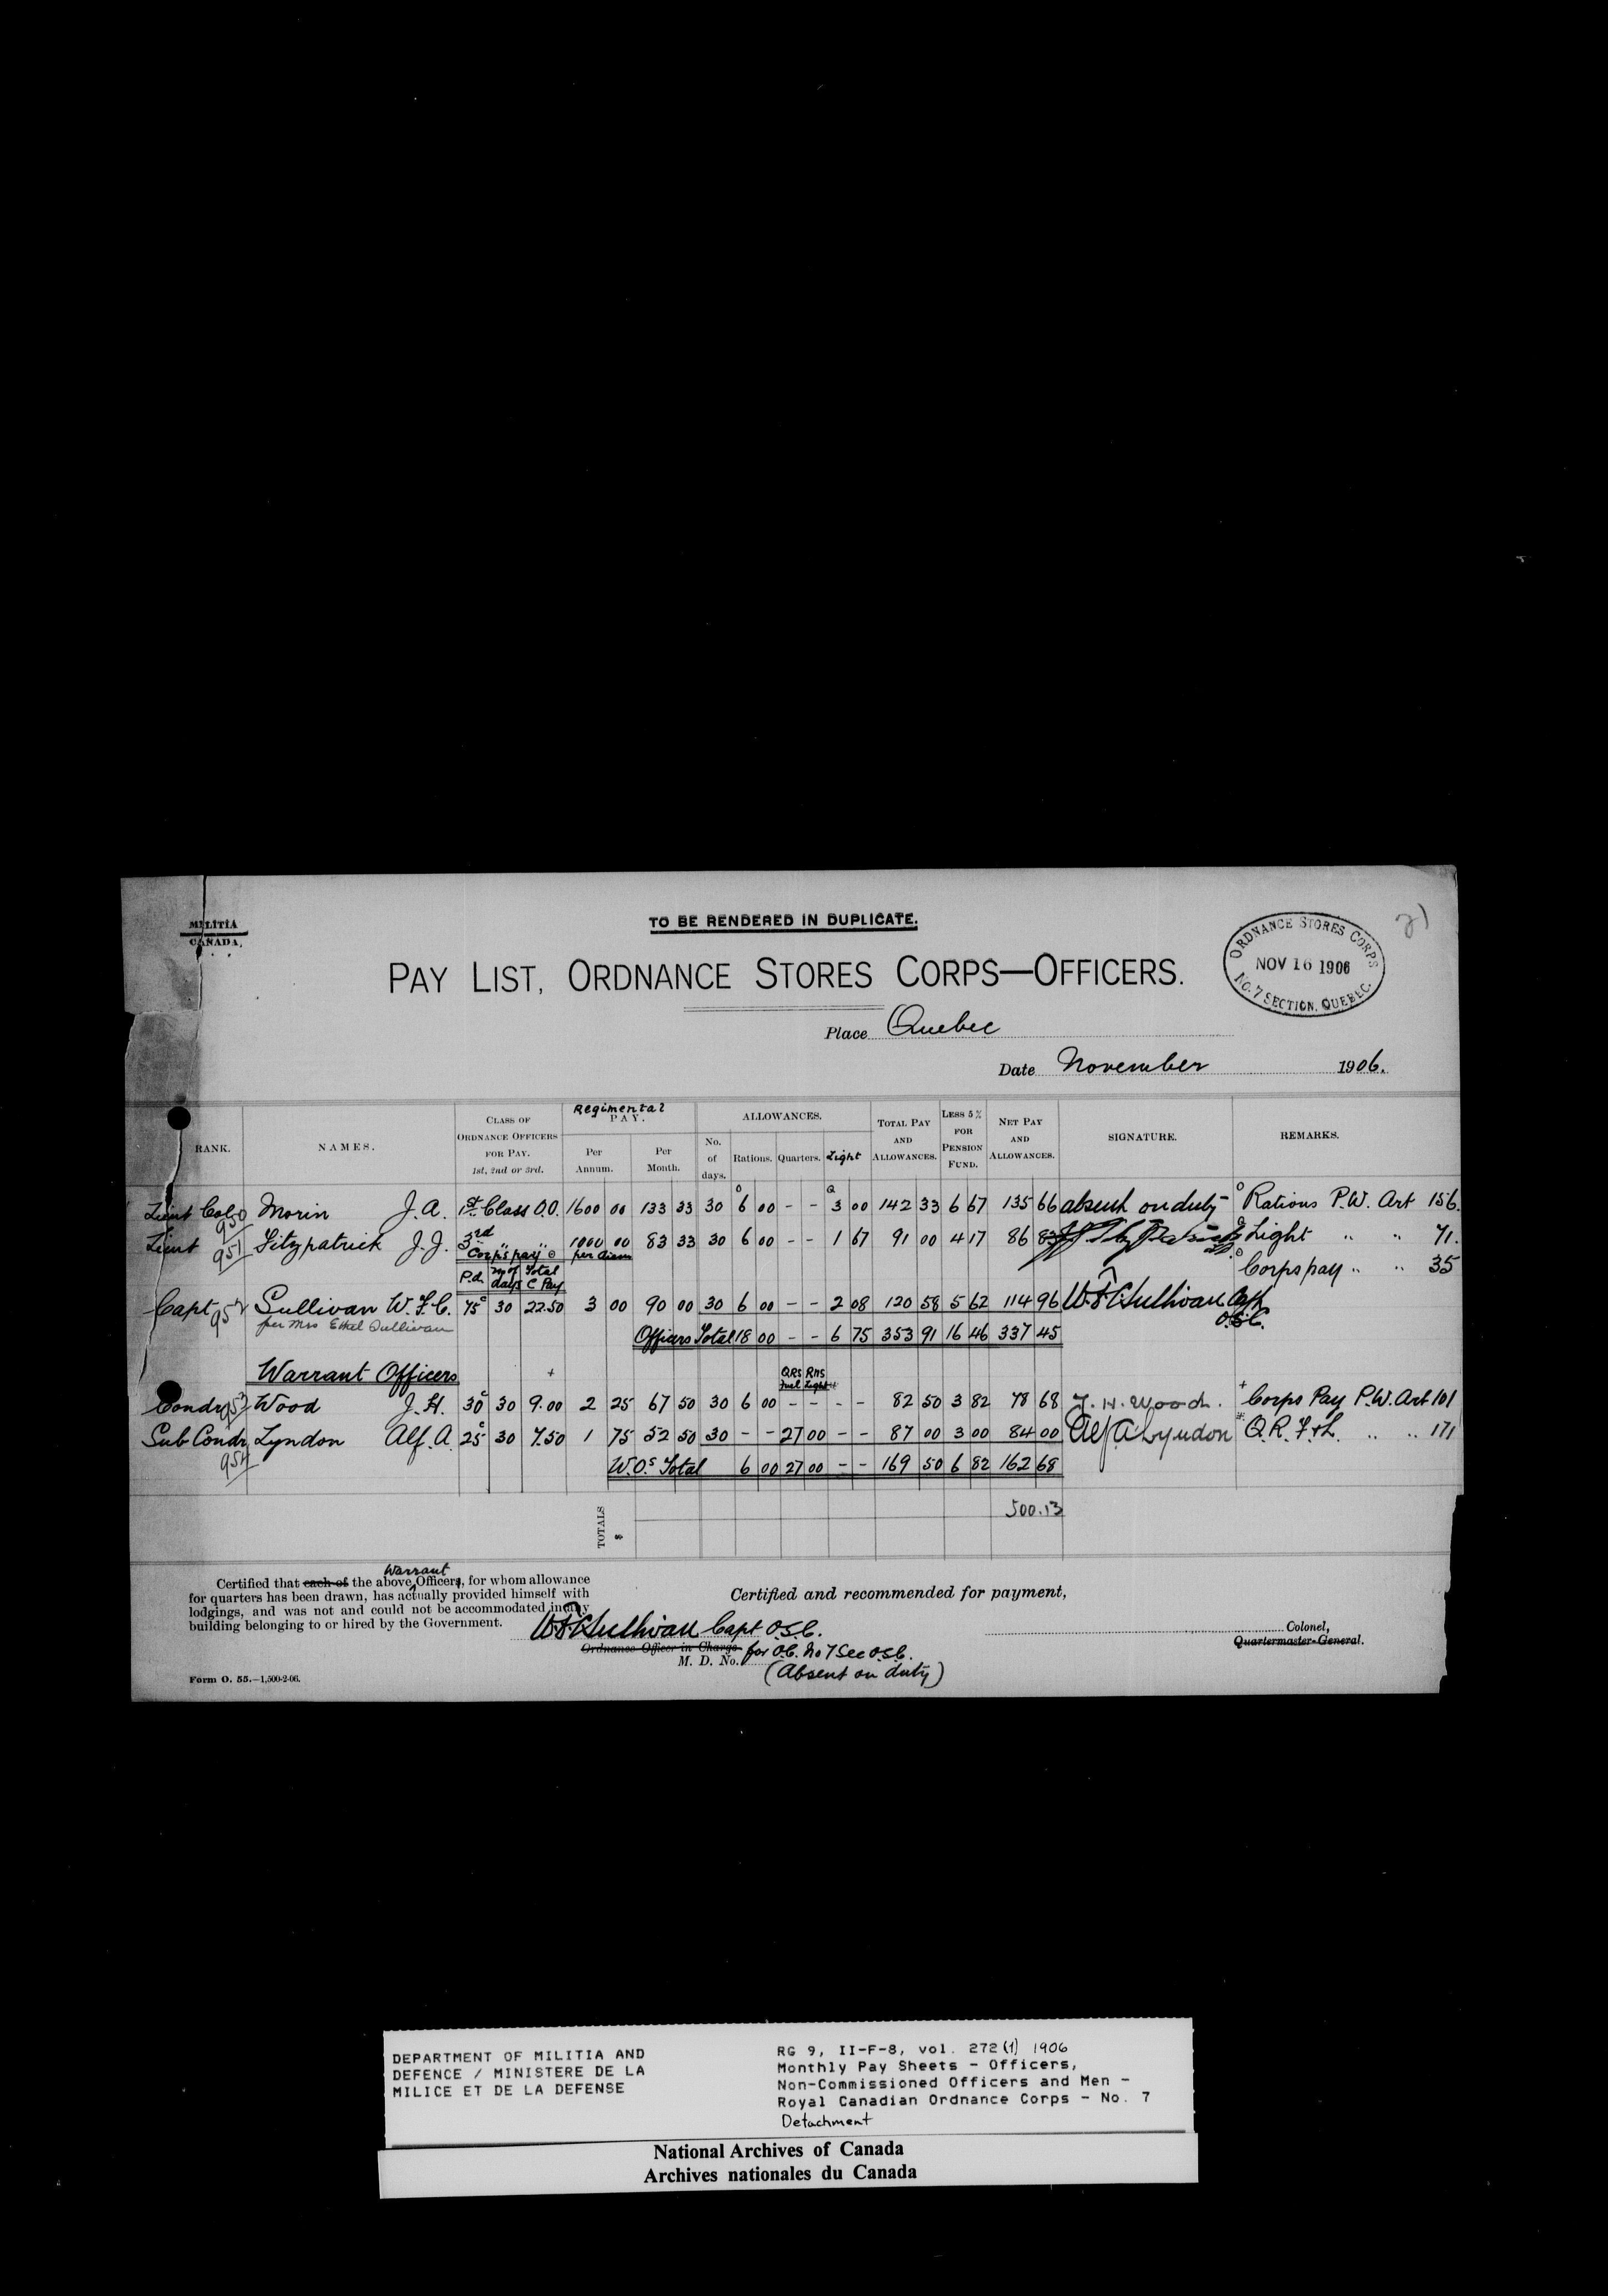 MILITIA
CANADA.
TO BE RENDERED IN DUPLICATE.
PAY LIST, ORDNANCE STORES CORPS—OFFICERS.
ORDNANCE STORES CORPS
NOV 16 1906
No. 7 SECTION, QUEBEC.
Place Quebec
Date November 1906.
RANK. NAMES. CLASS OF ORDNANCE OFFICERS FOR PAY. 1st, 2nd or 3rd. Regimental PAY. Per Annum. Per Month. ALLOWANCES. No. of days. Rations. Quarters. Light TOTAL PAY AND ALLOWANCES. LESS 5% FOR PENSION FUND. NET PAY AND ALLOWANCES. SIGNATURE. REMARKS.
Lieut Col 950 Morin J. A. 1st Class O.O. 1600 00 133 33 30 6 00 - - 3 00 142 33 6 67 135 66 absent on duty - Rations P.W. Art 156.
Lieut 951 Fitzpatrick J. J. 3rd " " 1000 00 83 33 30 6 00 - - 1 67 91 00 4 17 86 83 Light " " 71.
Corps pay per diem
P.d. No of days Total C Pay Corps pay " " 35
Capt 952 Sullivan W. F. C. 75c 30 22.50 3 00 90 00 30 6 00 - - 2 08 120 58 5 62 114 96 W.F.C. Sullivan Capt O.S.C.
per Mrs Ethel Sullivan
Officers Total 18 00 - - 6 75 353 91 16 46 337 45
Warrant Officers + QRS RNS Fuel Light
Condr 953 Wood J. H. 30c 30 9.00 2 25 67 50 30 6 00 - - - - 82 50 3 82 78 68 J. H. Wood. + Corps Pay P.W. Art 101
Sub Condr 954 Lyndon Alf. A. 25c 30 7.50 1 75 52 50 30 - - 27 00 - - 87 00 3 00 84 00 Alf A Lyndon Q. R. F. & L. " " 171
W.O.s Total 6 00 27 00 - - 169 50 6 82 162 68
TOTALS $ 500.13
Certified that each of the above Warrant Officers, for whom allowance
for quarters has been drawn, has actually provided himself with
lodgings, and was not and could not be accommodated in any
building belonging to or hired by the Government.
Certified and recommended for payment,
W.F.C. Sullivan Capt O.S.C.
Ordnance Officer in Charge for O.C. No 7 Sec O.S.C.
M. D. No.
(Absent on duty)
Colonel,
Quartermaster-General.
Form O. 55.—1,500-2-06.
DEPARTMENT OF MILITIA AND
DEFENCE / MINISTERE DE LA
MILICE ET DE LA DEFENSE
RG 9, II-F-8, vol. 272 (1) 1906
Monthly Pay Sheets - Officers,
Non-Commissioned Officers and Men -
Royal Canadian Ordnance Corps - No. 7
Detachment
National Archives of Canada
Archives nationales du Canada